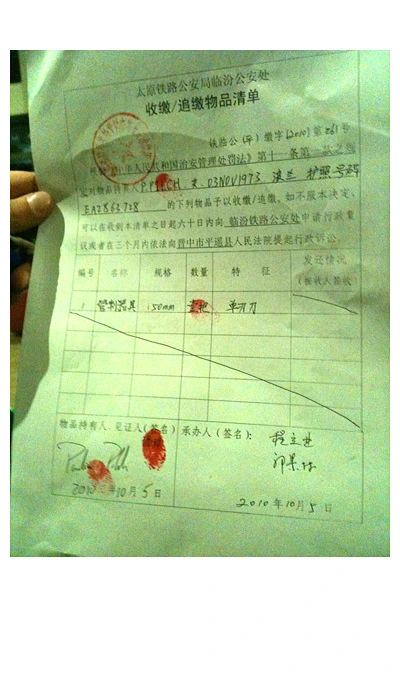 太原铁路公安局临汾公安处
收缴/追缴物品清单
铁临公(平)缴字[2010]第261号
根据《中华人民共和国治安管理处罚法》第十一条第一款之规
定对物品持有人 03NOV1973 波兰 护照号码
EA2862728 的下列物品予以收缴/追缴。如不服本决定,
可以在收到本清单之日起六十日内向 临汾铁路公安处 申请行政复
议或者在三个月内依法向晋中市平遥县人民法院提起行政诉讼。
编号 名称 规格 数量 特征 发还情况
(接收人签收)
1 管制器具 150mm 壹把 单刃刀
物品持有人、见证人(签名) 承办人(签名):
2010年10月5日 2010年10月5日